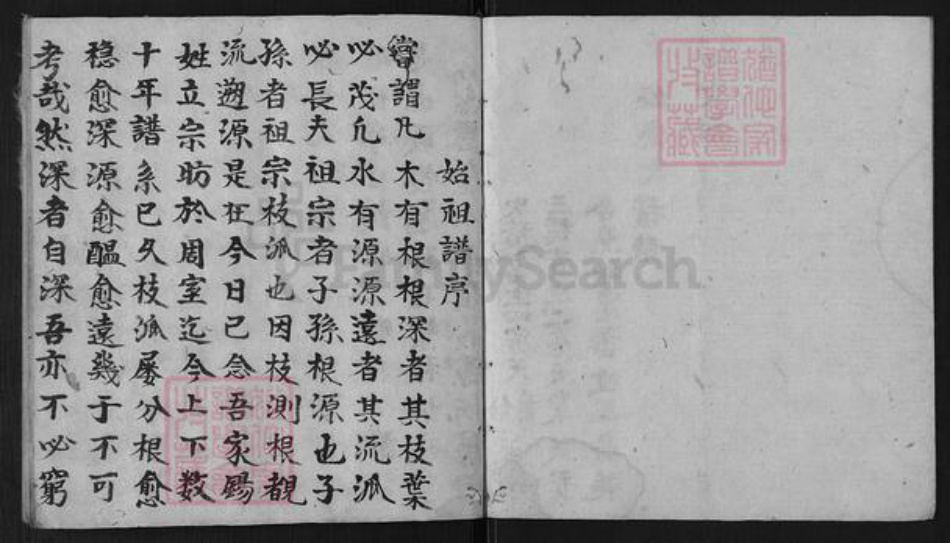 始祖譜序
嘗謂凡木有根根深者其枝葉
必茂凡水有源源遠者其流派
必長夫祖宗者子孫根源也子
孫者祖宗枝派也因枝測根觀
流遡源是在今日已念吾家賜
姓立宗昉於周室迄今上下数
十年譜系已久枝派屡分根愈
穏愈深源愈醖愈遠幾于不可
考哉然深者自深吾亦不必窮
FamilySearch